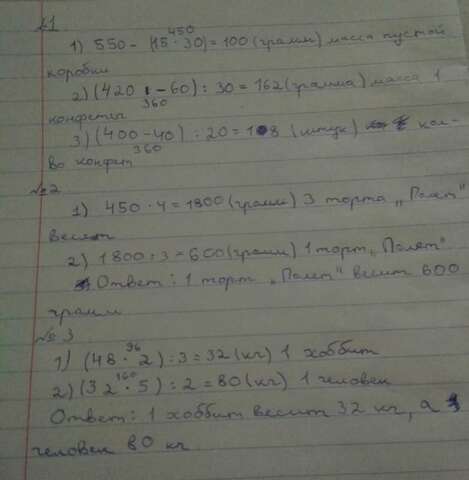 №1
1) 550 - (15 · 30) = 100 (грамм) масса пустой
450
коробки
2) (420 - 60) : 30 = 162 (грамма) масса 1
360
конфеты
3) (400 - 40) : 20 = 18 (штук) кол-
360
во конфет
№2
1) 450 · 4 = 1800 (грамм) 3 торта „Полёт"
весят
2) 1800 : 3 = 600 (грамм) 1 торт „Полет"
Ответ: 1 торт „Полет" весит 600
грамм
№ 3
1) (48 · 2) : 3 = 32 (кг) 1 хоббит
96
2) (32 · 5) : 2 = 80 (кг) 1 человек
160
Ответ: 1 хоббит весит 32 кг, а
человек 80 кг